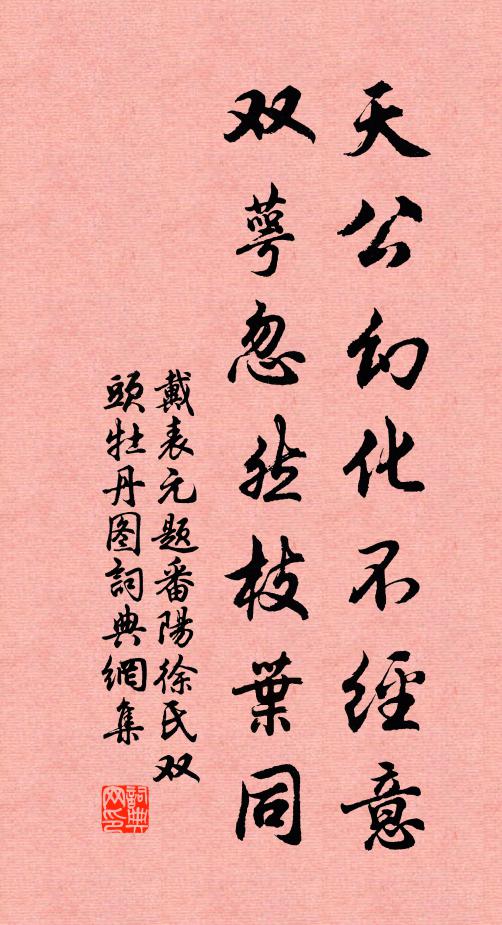 天公幻化不經意
双萼忽然枝葉同
戴表元题番陽徐氏双
頭牡丹图詞典網集
詞典网印